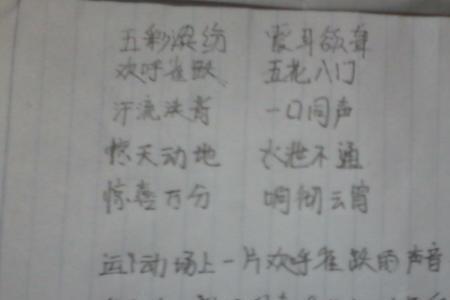 五彩缤纷 震耳欲聋
欢呼雀跃 五花八门
汗流浃背 一口同声
惊天动地 水泄不通
惊喜万分 响彻云霄
运动场上一片欢呼雀跃的声音